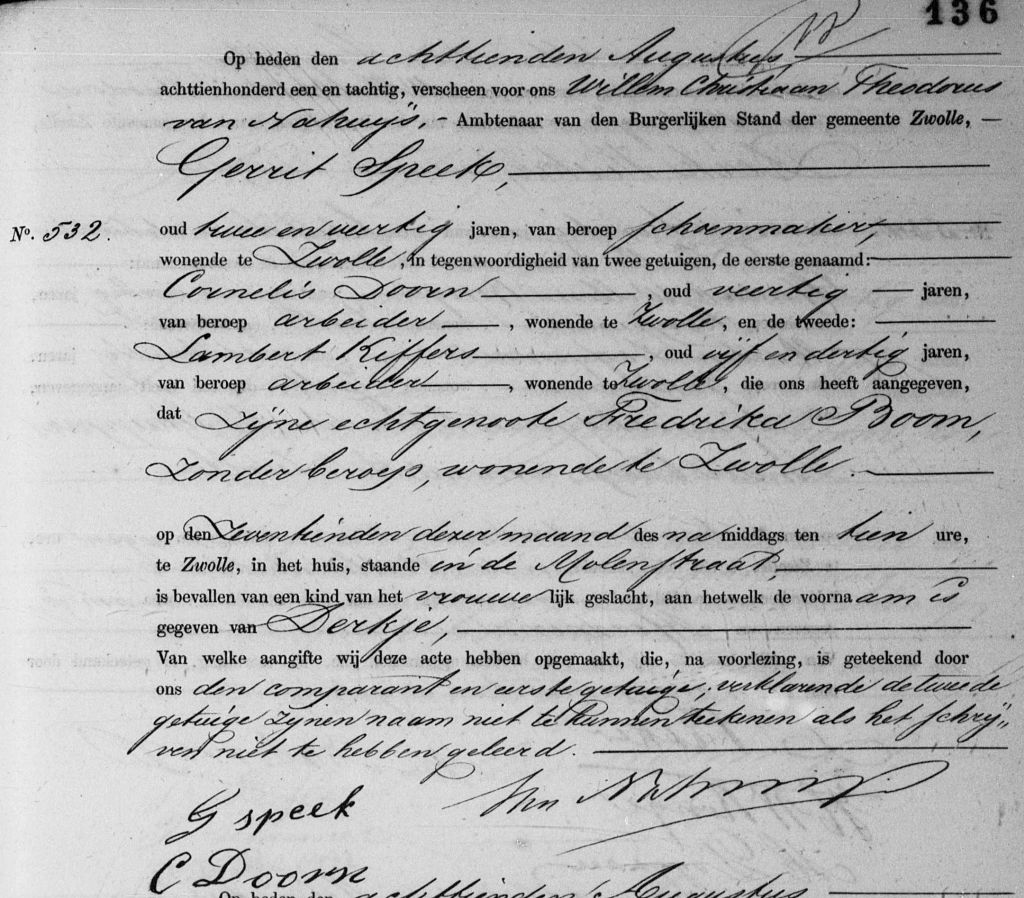 136
Op heden den achttienden Augustus
achttienhonderd een en tachtig, verscheen voor ons Willem Christiaan Theodorus
van Nahuijs, - Ambtenaar van den Burgerlijken Stand der gemeente Zwolle,
Gerrit Speek,
No. 532. oud twee en veertig jaren, van beroep schoenmaker,
wonende te Zwolle, in tegenwoordigheid van twee getuigen, de eerste genaamd:
Cornelis Doorn, oud veertig jaren,
van beroep arbeider, wonende te Zwolle, en de tweede:
Lambert Kiffers, oud vijf en dertig jaren,
van beroep arbeider, wonende te Zwolle, die ons heeft aangegeven,
dat zijne echtgenoote Fredrika Boom,
zonder beroep, wonende te Zwolle.
op den zeventienden dezer maand des namiddags ten tien ure,
te Zwolle, in het huis, staande in de Molenstraat,
is bevallen van een kind van het vrouwelijk geslacht, aan hetwelk de voornaam is
gegeven van Derkje,
Van welke aangifte wij deze acte hebben opgemaakt, die, na voorlezing, is geteekend door
ons den comparant en eerste getuige, verklarende de tweede
getuige zijnen naam niet te kunnen teekenen als het schrij„
ven niet te hebben geleerd.
G speek
C Doorn
Op heden den achttienden Augustus